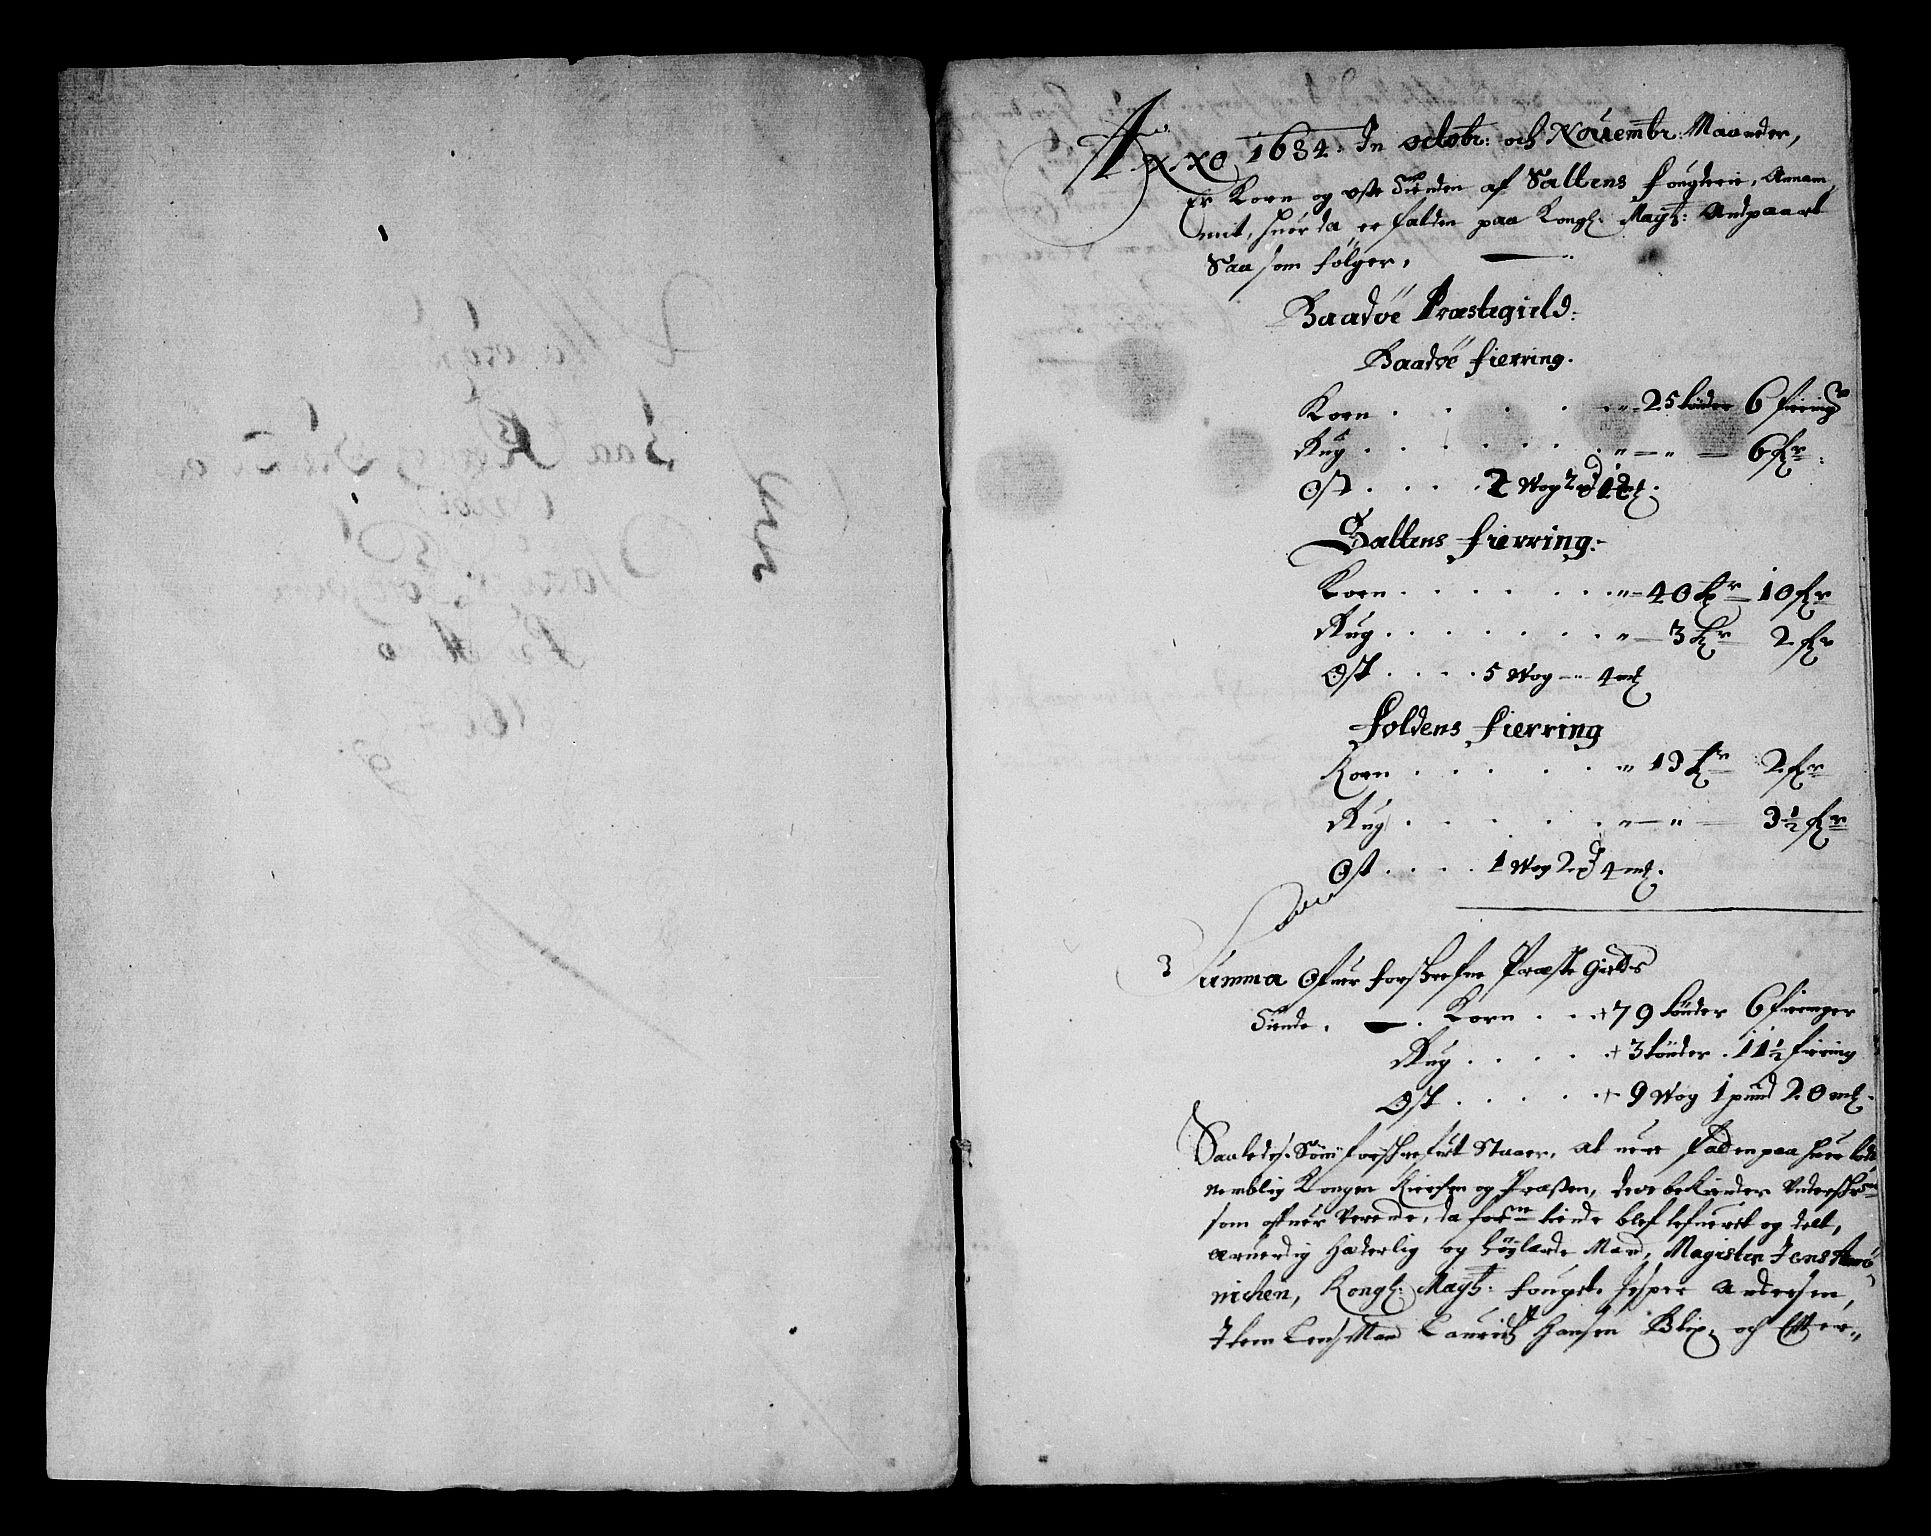 Anno 1684. In octobr: och Nouembr: Maaneder,
Er Korn og oste Tienden af Saltens fougderie, Annam
mit, huor da er falden paa Kongl: Mayts: Andpaart
Saa som følger,
Baadøe Præstegield:
Baadøe fierring.
Korn . . . . . 25 tønder 6 fieringr
Rug . . . . . 6 fr:
Ost . . . . 2 Wog 2 pd 12 mk.
Saltens fierring:
Korn . . . . . 40 tr 10 fr
Rug . . . . . 3 tr 2 fr
Ost . . . . 5 Wog - 4 mk
Foldens fierring
Korn . . . . . 13 tr 2 fr
Rug . . . . . 3½ fr
Ost . . . . 1 Wog 2 pd 4 mk.
Summa Ofuer forschrefne Præste Gields
Tiende, . Korn . . + 79 tønder 6 fieringer
Rug . . . . + 3 tønder . 11½ fiering
Ost . . . . + 9 Wog 1 pund 20 mk.
Saaledes Som forschrefuit Staaer, at uere falden paa huer lod
nemblig Kongen Kirchen og Præsten, det bekiender Underschrne
som ofuer Verende, da forne tiende blef lefueret og delt,
ærverdig Hæderlig og høylærde Mand, Magister Jens
nichen, Kongl: Mayts: fougt Jesper Andersen,
Item LensMand Lauridtz Hansen Blix, och Efter,,